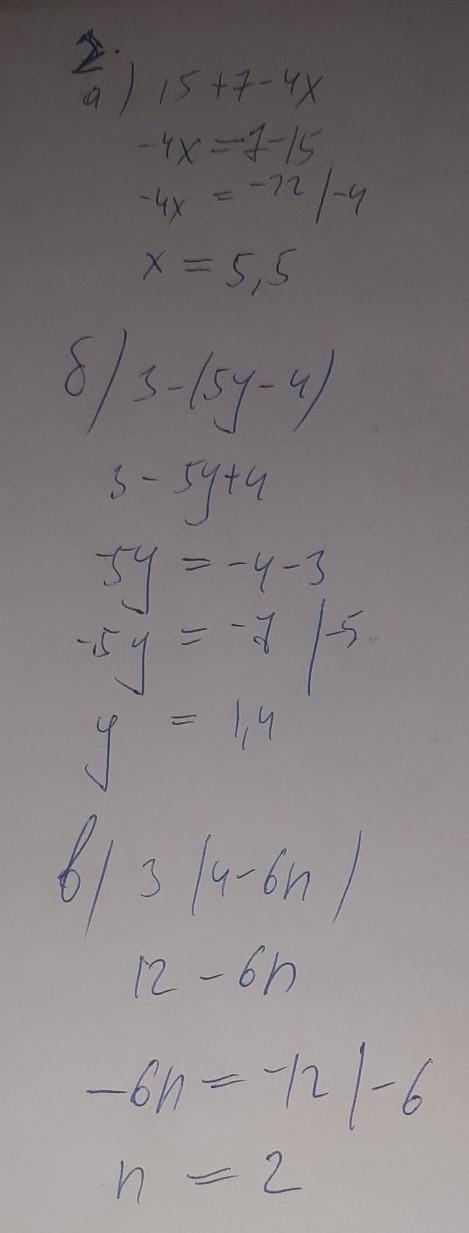 2.
а) 15+7-4x
-4x=-7-15
-4x = -22 /-4
x = 5,5
б) 3-(5y-4)
3-5y+4
-5y = -4-3
-5y = -7 /-5
y = 1,4
в) 3 (4-6n)
12-6n
-6n = -12 /-6
n = 2